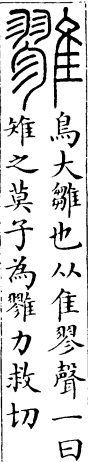 雡
鳥大雛也从隹翏聲一曰
雉之莫子為雡力救切